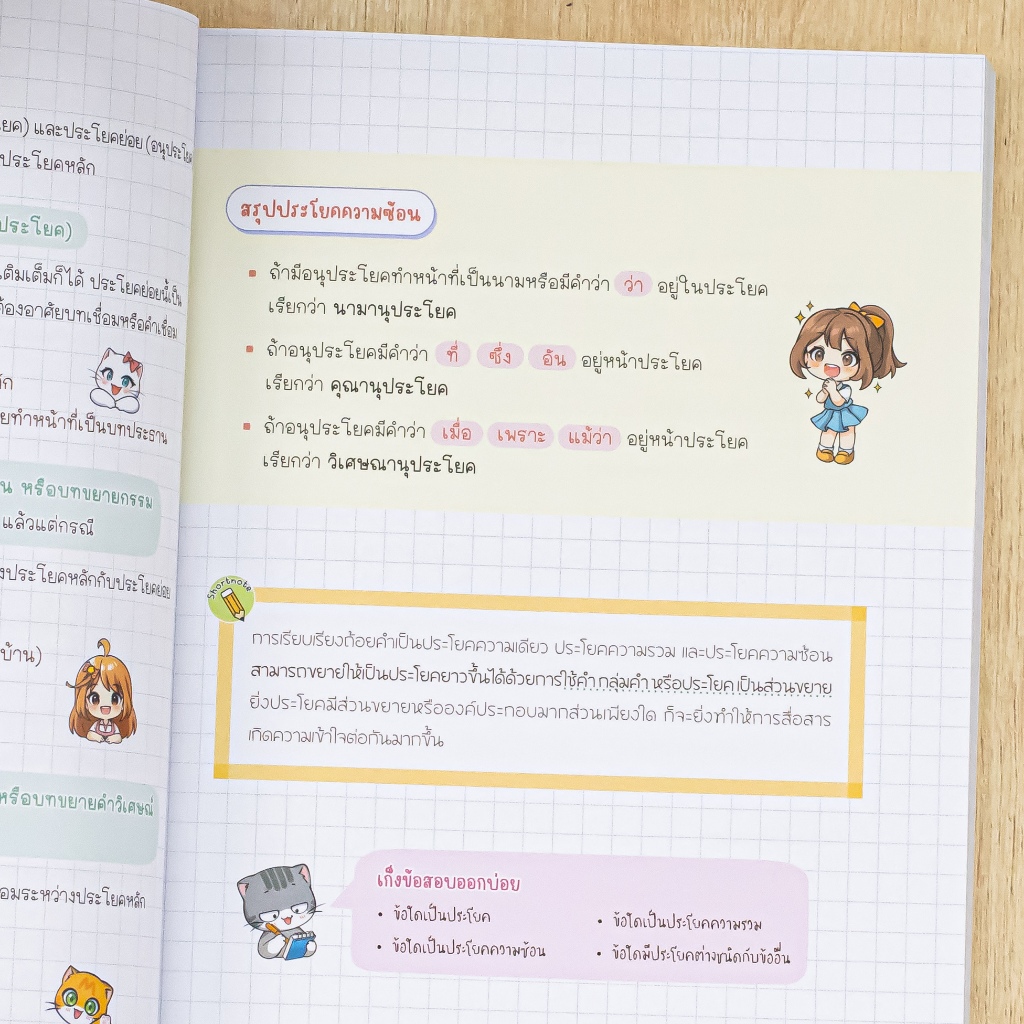 ยค) และประโยคย่อย (อนุประโยค
ประโยคหลัก
ประโยค)
เติมเต็มก็ได้ ประโยคย่อยนี้เป็น
ต้องอาศัยบทเชื่อมหรือคำเชื่อม
ยทำหน้าที่เป็นบทประธาน
น หรือบทขยายกรรม
แล้วแต่กรณี
งประโยคหลักกับประโยคย่อย
บ้าน)
หรือบทขยายคำวิเศษณ์
อมระหว่างประโยคหลัก
สรุปประโยคความซ้อน
ถ้ามีอนุประโยคทำหน้าที่เป็นนามหรือมีคำว่า ว่า อยู่ในประโยค
เรียกว่า นามานุประโยค
ถ้าอนุประโยคมีคำว่า ที่ ซึ่ง อัน อยู่หน้าประโยค
เรียกว่า คุณานุประโยค
ถ้าอนุประโยคมีคำว่า เมื่อ เพราะ แม้ว่า อยู่หน้าประโยค
เรียกว่า วิเศษณานุประโยค
Shortnote
การเรียบเรียงถ้อยคำเป็นประโยคความเดียว ประโยคความรวม และประโยคความซ้อน
สามารถขยายให้เป็นประโยคยาวขึ้นได้ด้วยการใช้คำ กลุ่มคำ หรือประโยค เป็นส่วนขยาย
ยิ่งประโยคมีส่วนขยายหรือองค์ประกอบมากส่วนเพียงใด ก็จะยิ่งทำให้การสื่อสาร
เกิดความเข้าใจต่อกันมากขึ้น
เก็งข้อสอบออกบ่อย
• ข้อใดเป็นประโยค
• ข้อใดเป็นประโยคความรวม
• ข้อใดเป็นประโยคความซ้อน
• ข้อใดมีประโยคต่างชนิดกับข้ออื่น